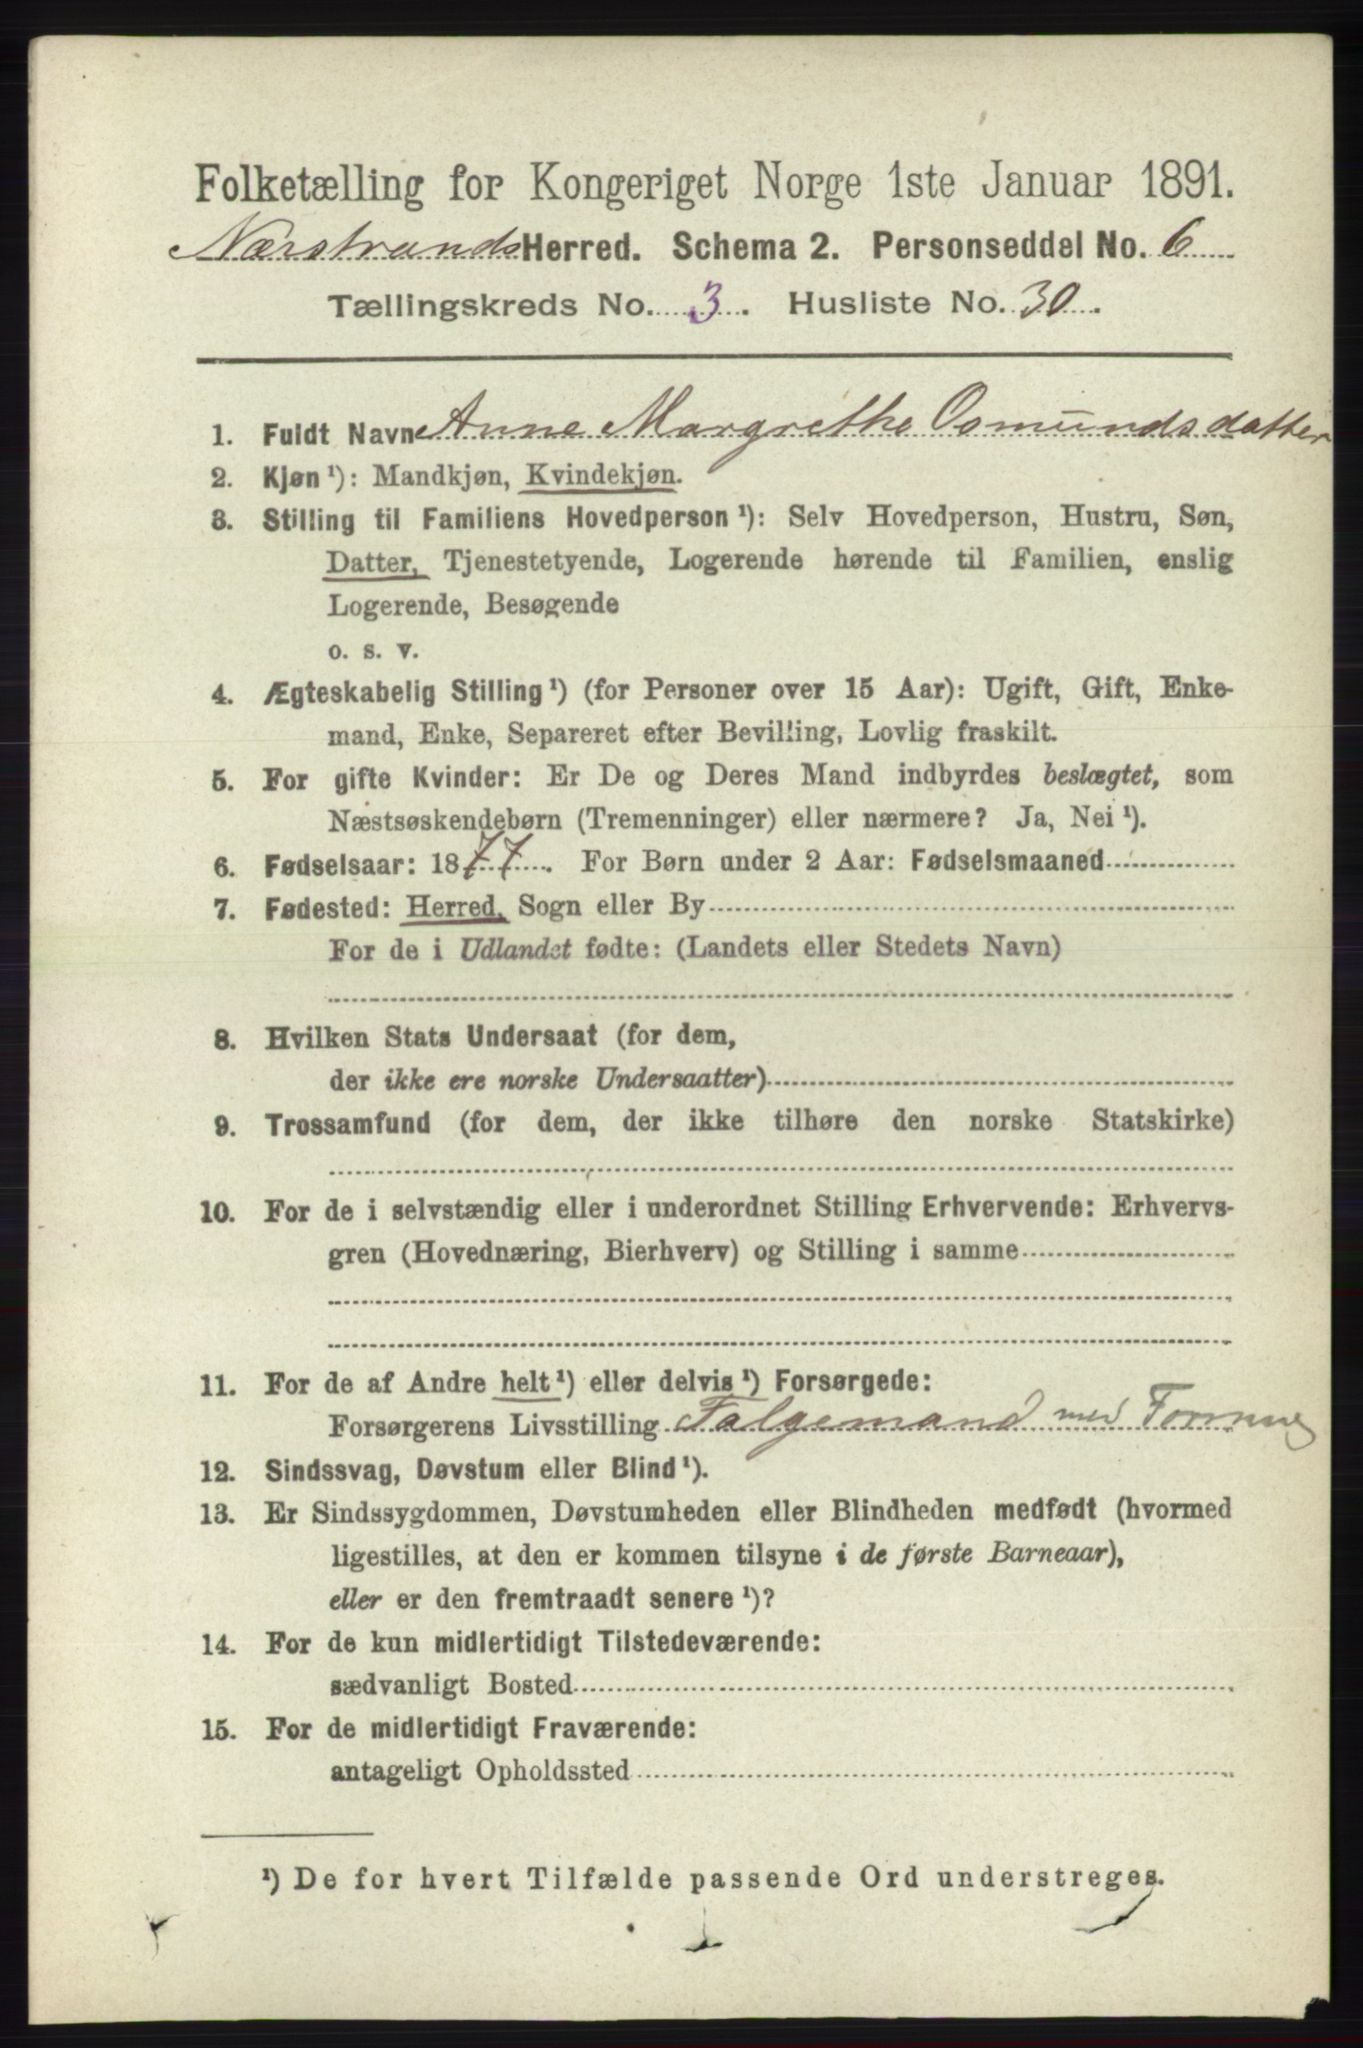 Folketælling for Kongeriget Norge 1ste Januar 1891.
Nærstrands Herred. Schema 2. Personseddel No. 6
Tællingskreds No. 3. Husliste No. 30.
1. Fuldt Navn Anne Margrethe Osmundsdatter
2. Kjøn ¹): Mandkjøn, Kvindekjøn.
3. Stilling til Familiens Hovedperson ¹): Selv Hovedperson, Hustru, Søn,
Datter, Tjenestetyende, Logerende hørende til Familien, enslig
Logerende, Besøgende
o. s. v.
4. Ægteskabelig Stilling ¹) (for Personer over 15 Aar): Ugift, Gift, Enke-
mand, Enke, Separeret efter Bevilling, Lovlig fraskilt.
5. For gifte Kvinder: Er De og Deres Mand indbyrdes beslægtet, som
Næstsøskendebørn (Tremenninger) eller nærmere? Ja, Nei ¹).
6. Fødselsaar: 1877. For Børn under 2 Aar: Fødselsmaaned
7. Fødested: Herred, Sogn eller By
For de i Udlandet fødte: (Landets eller Stedets Navn)
8. Hvilken Stats Undersaat (for dem,
der ikke ere norske Undersaatter)
9. Trossamfund (for dem, der ikke tilhøre den norske Statskirke)
10. For de i selvstændig eller i underordnet Stilling Erhvervende: Erhvervs-
gren (Hovednæring, Bierhverv) og Stilling i samme
11. For de af Andre helt ¹) eller delvis ¹) Forsørgede:
Forsørgerens Livsstilling Folgemand med Formue
12. Sindssvag, Døvstum eller Blind ¹).
13. Er Sindssygdommen, Døvstumheden eller Blindheden medfødt (hvormed
ligestilles, at den er kommen tilsyne i de første Barneaar),
eller er den fremtraadt senere ¹)?
14. For de kun midlertidigt Tilstedeværende:
sædvanligt Bosted
15. For de midlertidigt Fraværende:
antageligt Opholdssted
¹) De for hvert Tilfælde passende Ord understreges.